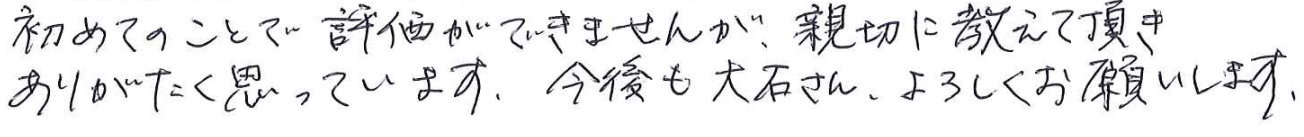 初めてのことで評価ができませんが、親切に教えて頂き
ありがたく思っています、今後も大石さん、よろしくお願いします、